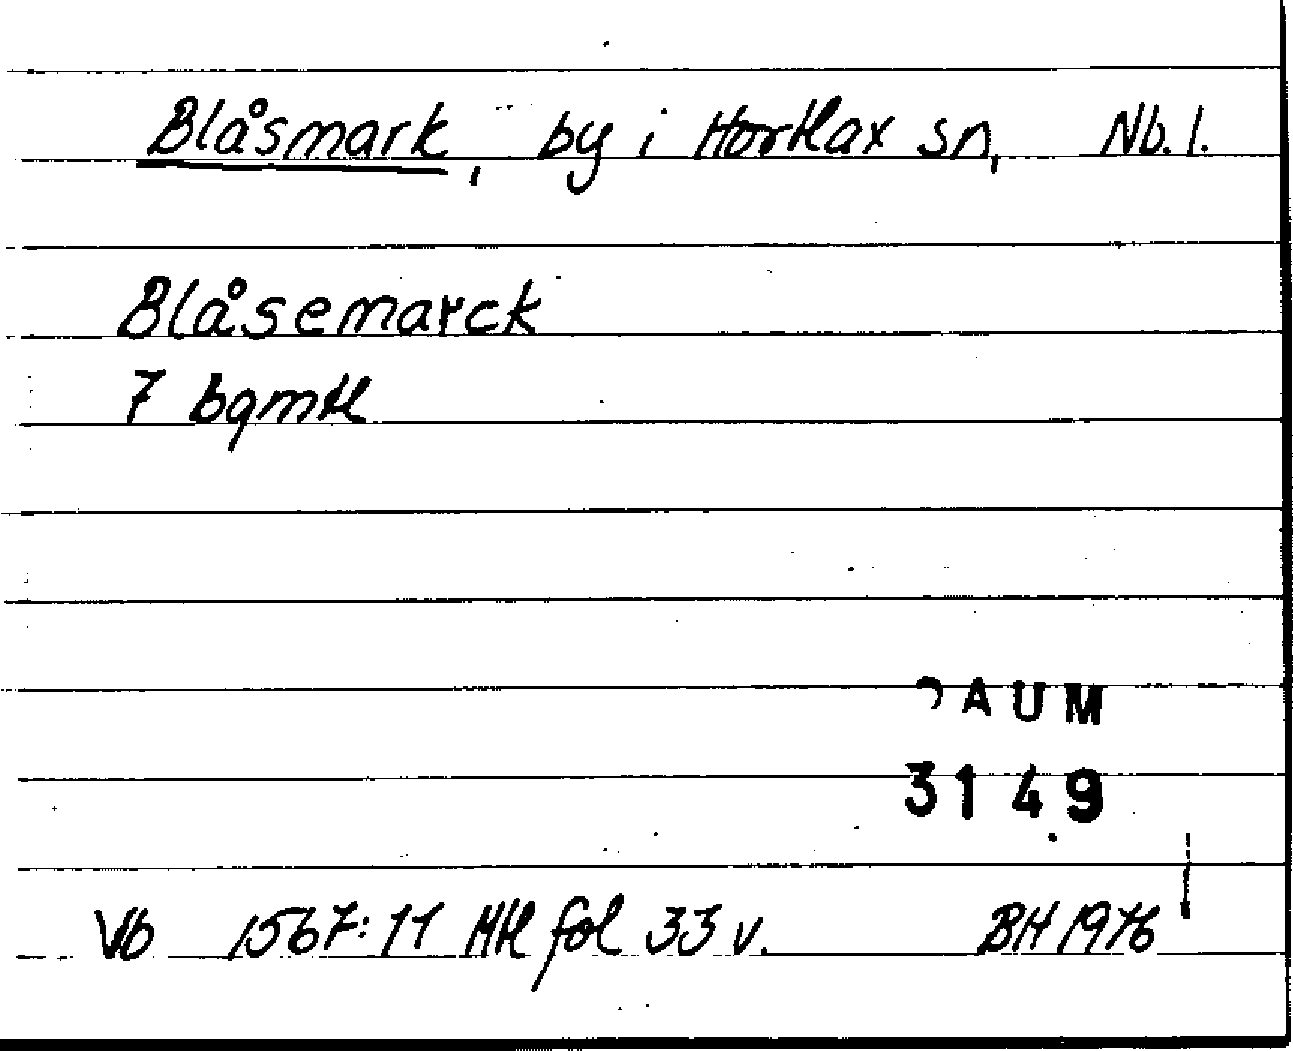 Blåsmark, by i Hortlax sn, Nb. l.
Blåsemarck
7 bqmtl
DAUM
3149
Vb 1567:11 Mtl fol 33 v. BH 1976